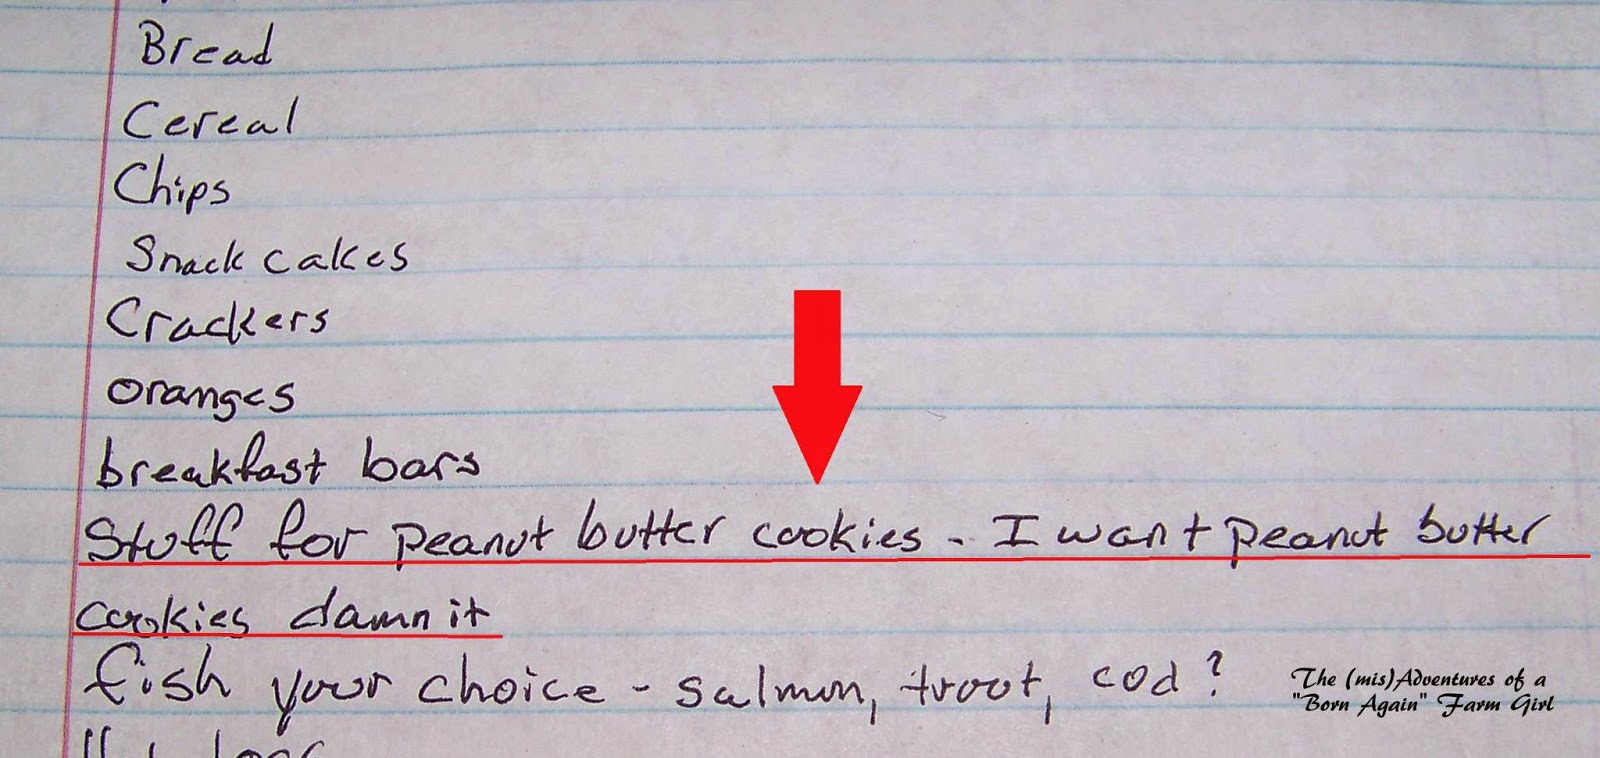 Bread
Cereal
Chips
Snack cakes
Crackers
oranges
breakfast bars
Stuff for peanut butter cookies - I want peanut butter
cookies damn it
fish your choice - salmon, trout, cod?
The (mis)Adventures of a
"Born Again" Farm Girl